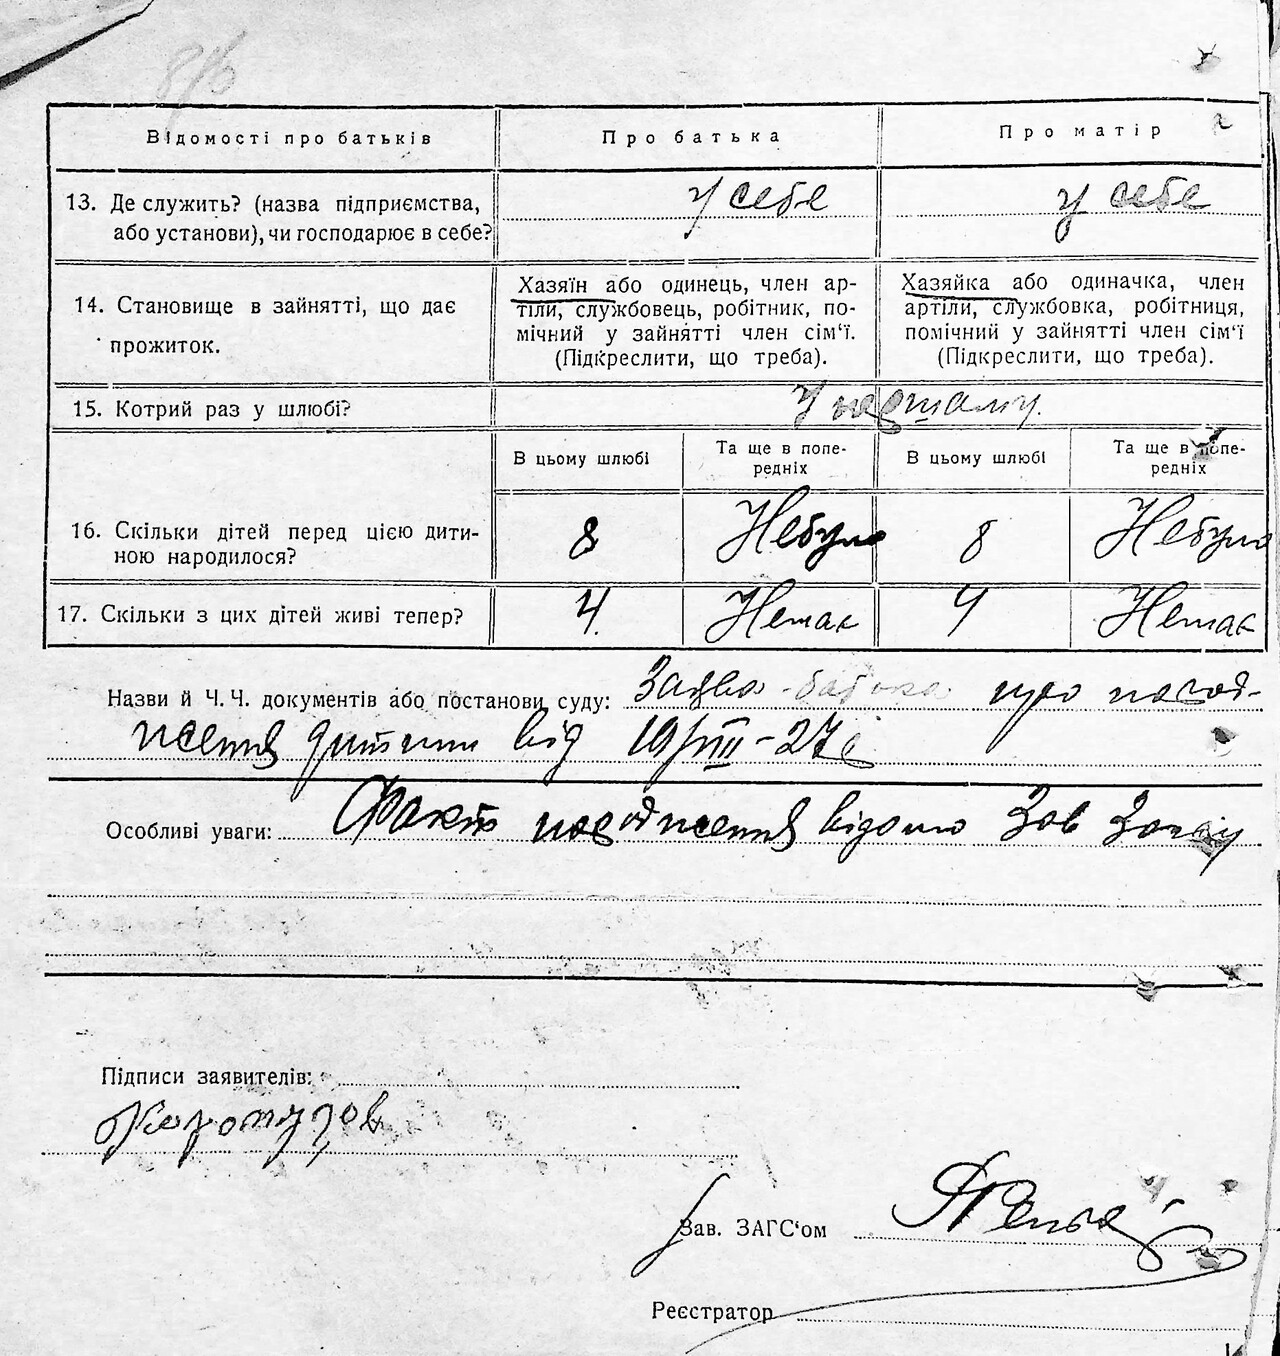 Відомості про батьків Про батька Про матір
13. Де служить? (назва підприємства, у себе у себе
або установи), чи господарює в себе?
Хазяїн або одинець, член ар- Хазяйка або одиначка, член
14. Становище в зайнятті, що дає тіли, службовець, робітник, по- артіли, службовка, робітниця,
прожиток. мічний у зайнятті член сім'ї. помічний у зайнятті член сім'ї
(Підкреслити, що треба). (Підкреслити, що треба).
15. Котрий раз у шлюбі? У першому.
В цьому шлюбі Та ще в попе- В цьому шлюбі Та ще в попе-
редніх редніх
16. Скільки дітей перед цією дити- 8 Небуло 8 Небуло
ною народилося?
17. Скільки з цих дітей живі тепер? 4 Немає 4 Немає
Назви й Ч. Ч. документів або постанови суду: Заява батька про народ-
ження дитини від 19/III-27
Особливі уваги: Факт народження відомо Зав Загсу
Підписи заявителів:
Зав. ЗАГС'ом
Реєстратор